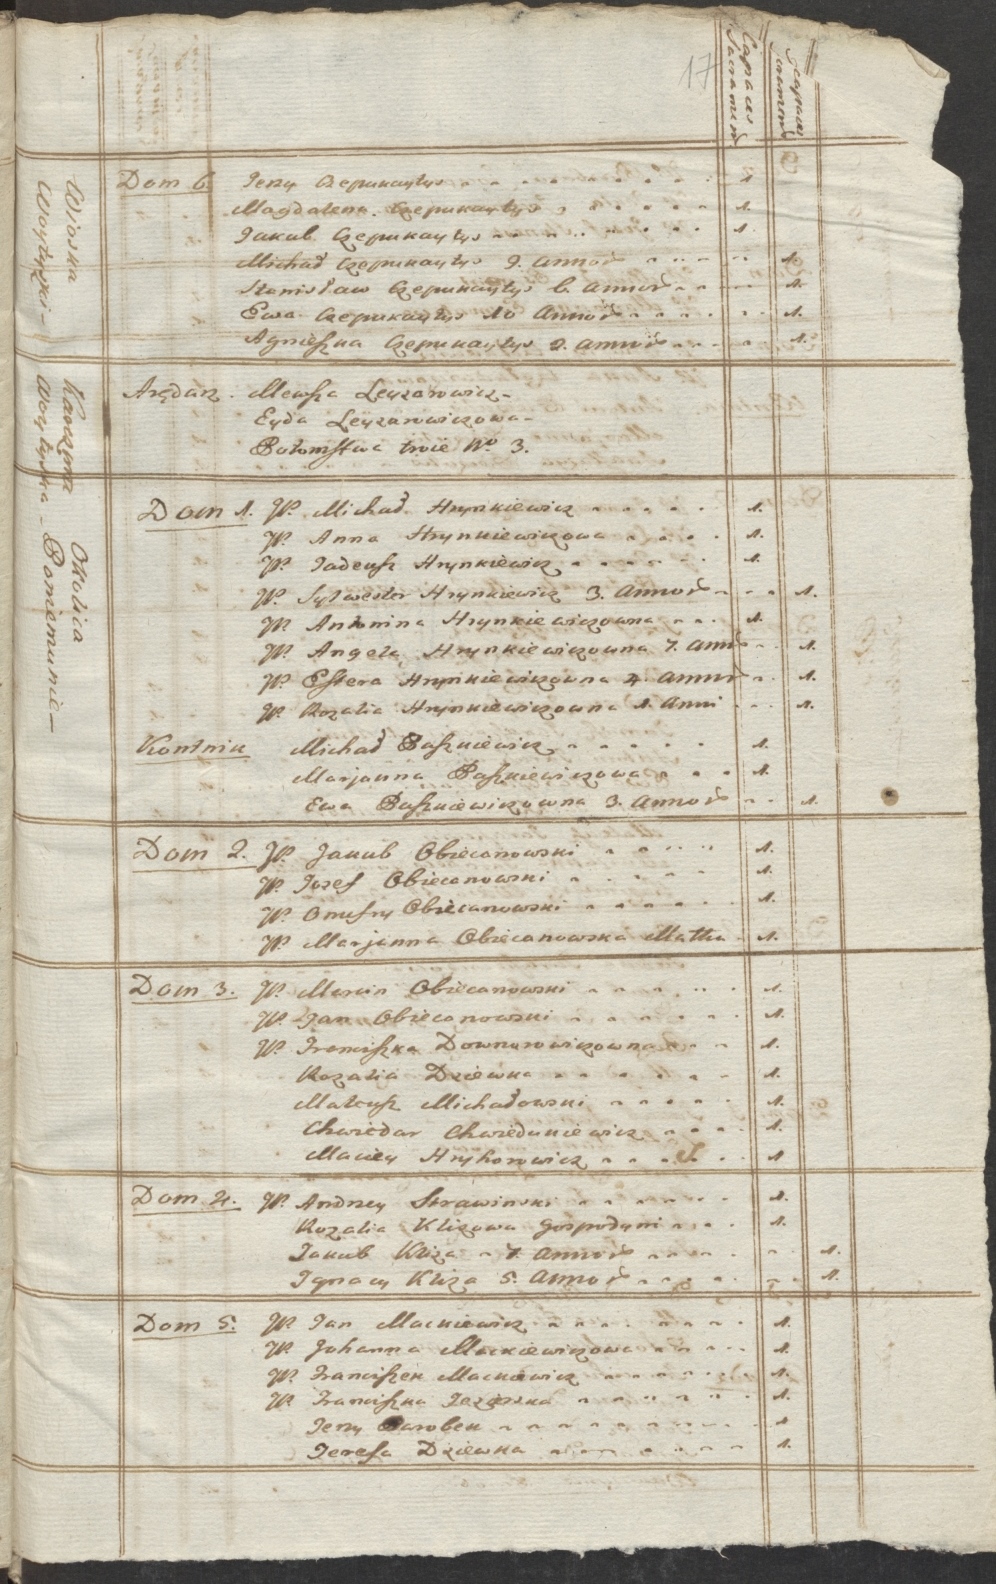 17
Capaces Sacramen
Incapaces Sacramen
Wioska
Dom 6. Jerzy Czepukaytys 1.
Magdalena Czepukaytys 1.
Jakub Czepukaytys 1.
Michał Czepukaytys 9. Annor 1.
Stanisław Czepukaytys 6. Annor 1.
Ewa Czepukaytys 10 Annor 1.
Agnieszka Czepukaytys 2. Annor 1.
Karczma
Arędarz. Mewsza Leyzerowicz
Eyda Leyzerowiczowa
Potomstwa troie No 3.
Okolica
Poniemunie
Dom 1. JP. Michał Hrynkiewicz 1.
JP. Anna Hrynkiewiczowa 1.
JP. Tadeusz Hrynkiewicz 1.
JP. Sylwester Hrynkiewicz 3. Annor 1.
JP. Antonina Hrynkiewiczowna 1.
JP. Angela Hrynkiewiczowna 7. Ann 1.
JP. Estera Hrynkiewiczowna 4. Annor 1.
JP. Rozalia Hrynkiewiczowna 1. Anni 1.
Kontnik Michał Paszkiewicz 1.
Marjanna Paszkiewiczowa 1.
Ewa Paszkiewiczowna 3. Annor 1.
Dom 2. JP. Jakub Obiecanowski 1.
JP. Jozef Obiecanowski 1.
JP. Onufry Obiecanowski 1.
JP. Marjanna Obiecanowska Matka 1.
Dom 3. JP. Marcin Obiecanowski 1.
JP. Jan Obiecanowski 1.
JP. Franciszka Downorowiczowna 1.
Rozalia Dziewka 1.
Mateusz Michałowski 1.
Chwiedor Chwiedukiewicz 1.
Maciey Hryhorowicz 1
Dom 4. JP. Andrzey Strawinski 1.
Rozalia Klizowa Gospodyni 1.
Jakub Kliza 7. Annor 1.
Ignacy Kliza 5. Annor 1.
Dom 5. JP. Jan Mackiewicz 1.
JP. Johanna Mackiewiczowa 1.
JP. Franciszek Mackiewicz 1.
JP. Franciszka Jezierska 1.
Jerzy Parobek 1
Teresa Dziewka 1.